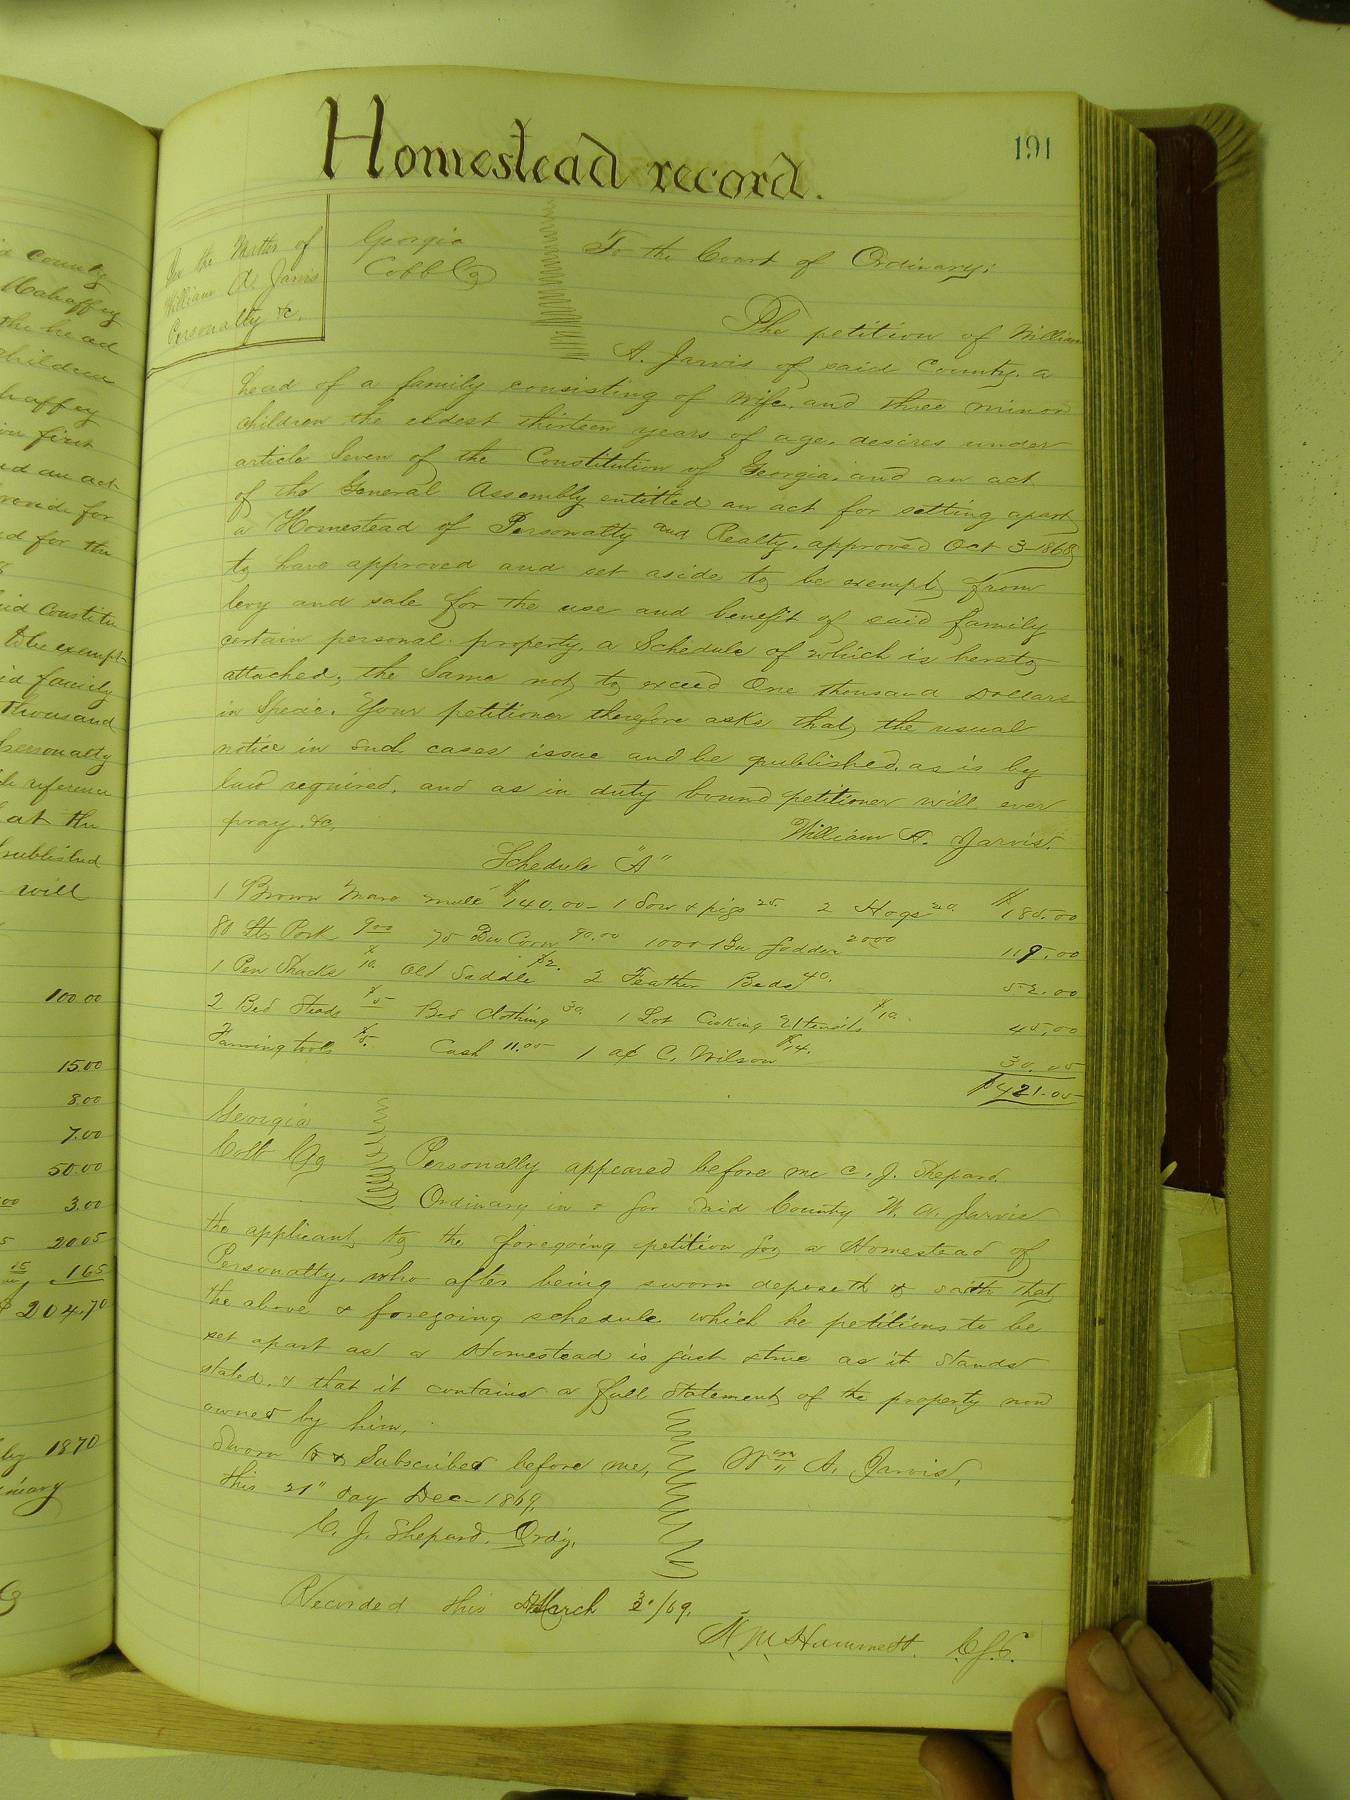 Homestead record.
191
In the Matter of
William A. Jarvis
Personalty &c.
Georgia
Cobb Co
To the Court of Ordinary;
The petition of William
A. Jarvis of said County, a
head of a family consisting of wife, and three minor
children the eldest thirteen years of age, desires under
article Seven of the Constitution of Georgia, and an act
of the General Assembly entitled an act for setting apart
a Homestead of Personalty and Realty, approved Oct 3-1868
to have approved and set aside to be exempt from
levy and sale for the use and benefit of said family
certain personal property, a Schedule of which is hereto
attached, the Same not to exceed One thousand Dollars
in Specie. Your petitioner therefore asks that the usual
notice in such cases issue and be published, as is by
law required, and as in duty bound petitioner will ever
pray. &c.
William A. Jarvis.
Schedule "A"
1 Brown Mare mule $140.00 - 1 Sow & pigs 25. 2 Hogs 20. $185.00
80 lbs Pork 9.00 75 Bu Corn 90.00 1000 Bu fodder 20.00 119.00
1 Pen Shucks $10. Old Saddle $2. 2 Feather Beds 40. 52.00
2 Bed Steads $5 Bed Clothing 30 1 Lot Cooking Utensils $10. 45.00
Farming tools $5. Cash 11.00 1 a/c C. Wilson $14. 30.00
$421.00
Georgia
Cobb Co
Personally appeared before me C. J. Shepard
Ordinary in & for Said County W. A. Jarvis
the applicant to the foregoing petition for a Homestead of
Personalty, who after being sworn deposeth & saith that
the above & foregoing schedule which he petitions to be
set apart as a Homestead is just & true as it Stands
stated, & that it contains a full Statement of the property now
owned by him.
Sworn to & Subscribed before me,
this 21" day Dec - 1869.
C. J. Shepard. Ordy.
Wm A. Jarvis,
Recorded this March 3"/69.
N. M. Hammett. C.S.C.
county
Mahaffey
the head
children
haffey
first
and an act
provide for
and for the
said Constitu
to be exempt
said family
thousand
personalty
reference
at the
published
will
100.00
15.00
8.00
7.00
50.00
3.00
20.05
1.65
$204.70
1870